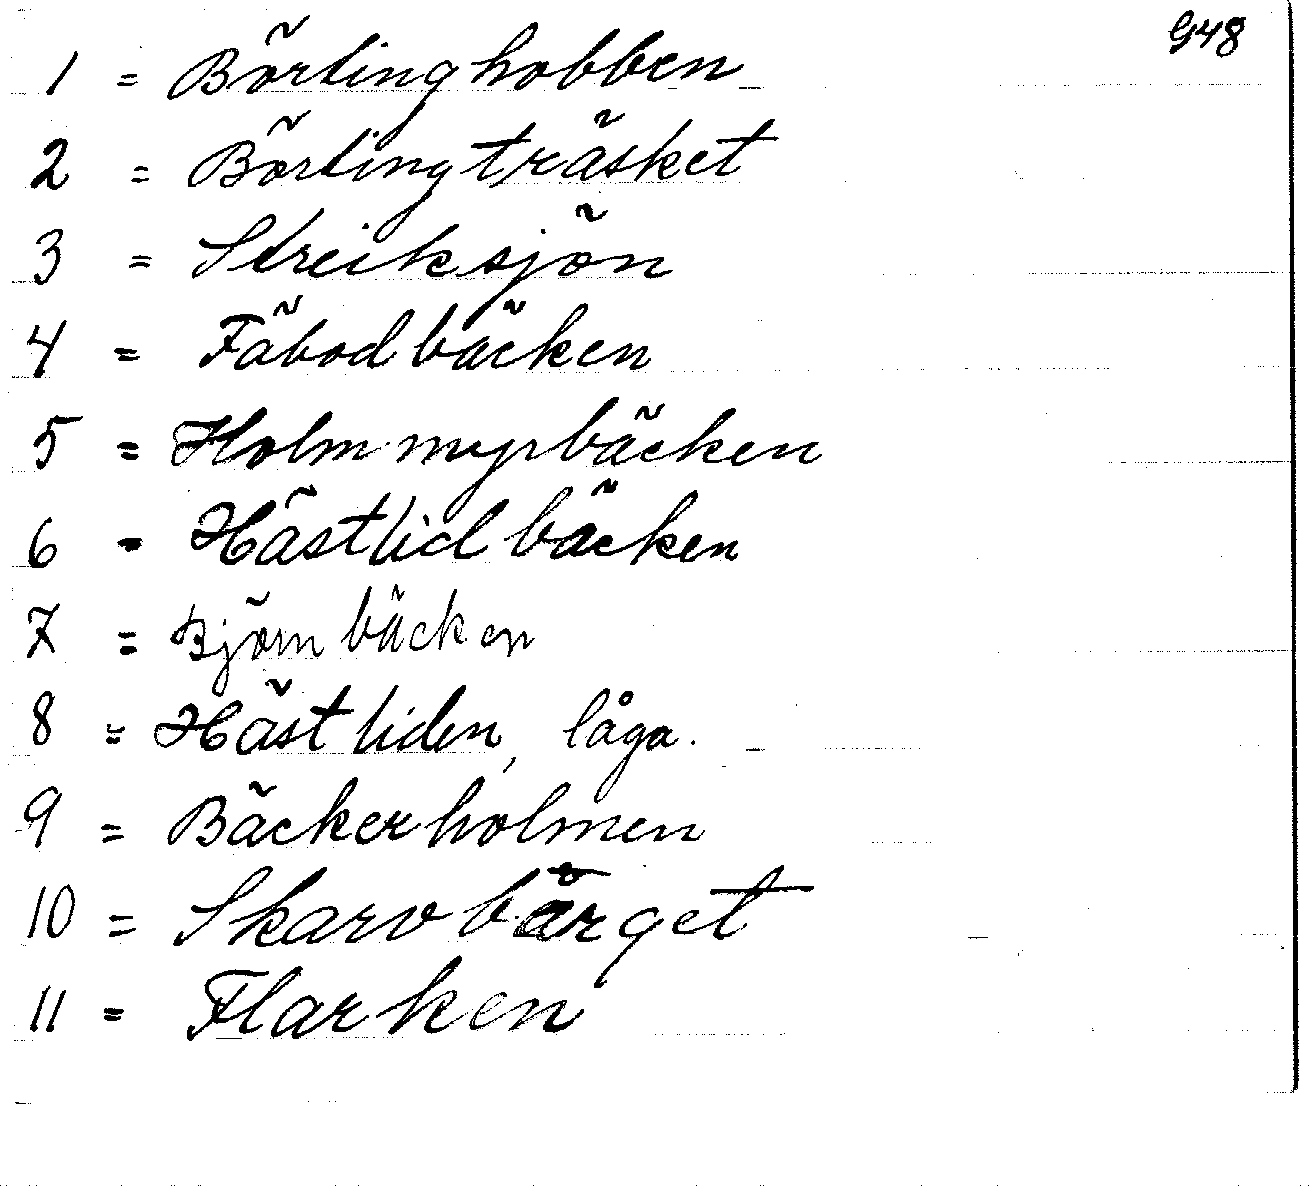 948
1 = Börtinghobben
2 = Börtingträsket
3 = Streiksjön
4 = Fäbodbäcken
5 = Holmmyrbäcken
6 = Hästlidbäcken
7 = Björnbäcken
8 = Hästliden, låga.
9 = Bäckerholmen
10 = Skarvbärget
11 = Flarken